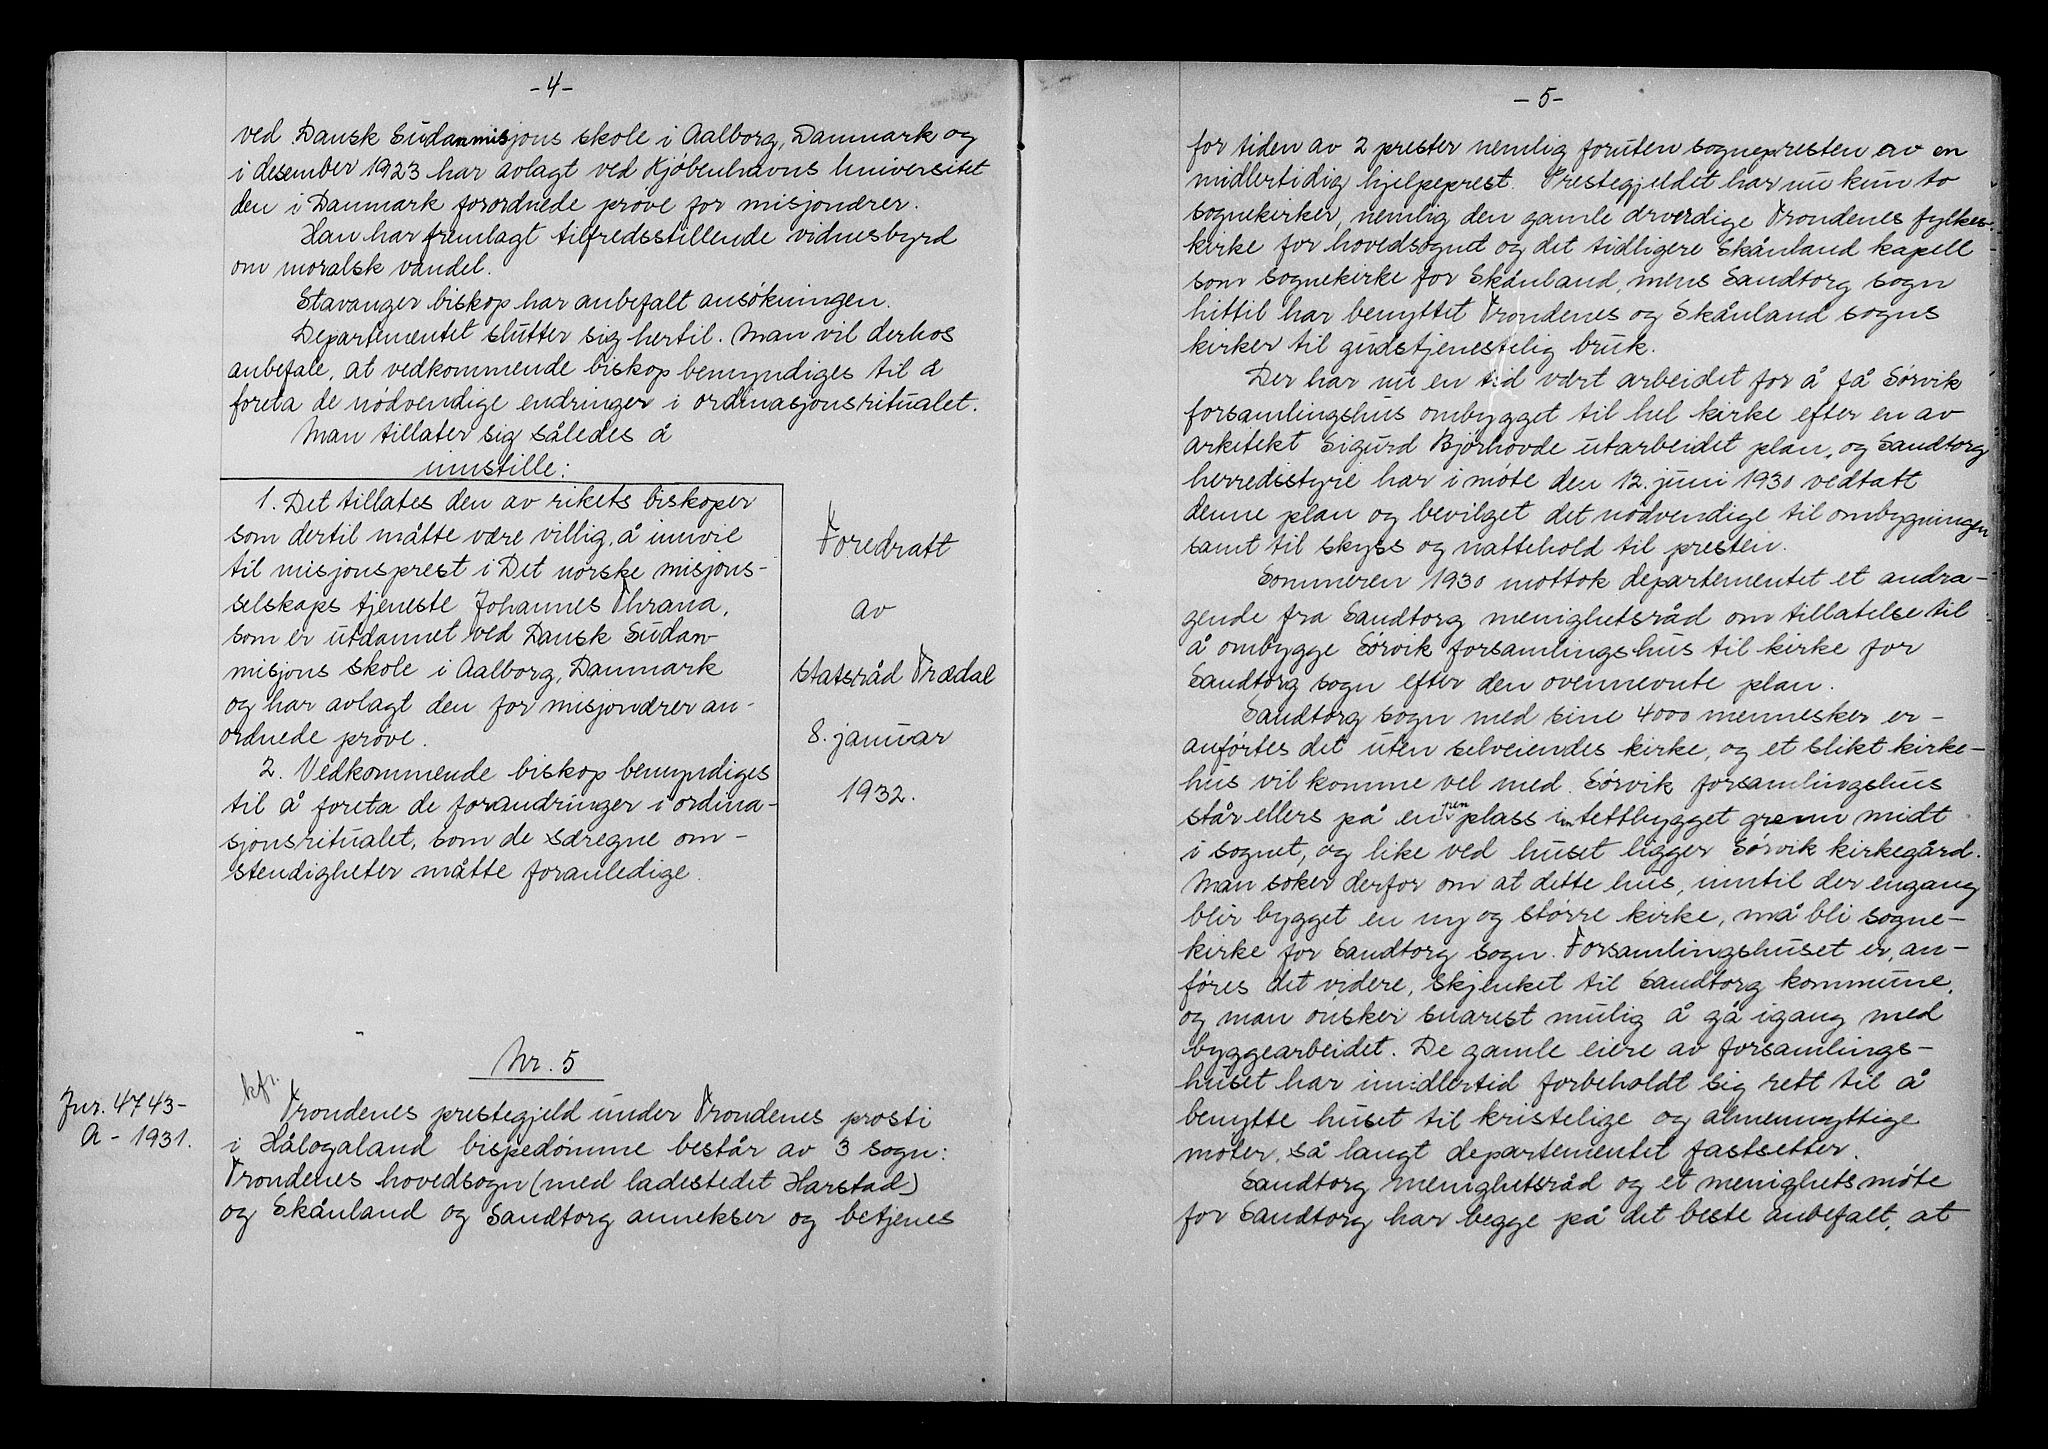 -4-
ved Dansk Sudanmisjons skole i Aalborg, Danmark og
i desember 1923 har avlagt ved Kjøbenhavns Universitet
den i Danmark forordnede prøve for misjonærer.
Han har fremlagt tilfredsstillende vidnesbyrd
om moralsk vandel.
Stavanger biskop har anbefalt ansøkningen.
Departementet slutter sig hertil. Man vil derhos
anbefale, at vedkommende biskop bemyndiges til å
foreta de nødvendige endringer i ordinasjonsritualet.
Man tillater sig således å
innstille:
1. Det tillates den av rikets biskoper
som dertil måtte være villig, å innvie
til misjonsprest i Det norske misjons-
selskaps tjeneste Johannes Thrana,
som er utdannet ved Dansk Sudan-
misjons skole i Aalborg, Danmark
og har avlagt den for misjonærer an-
ordnede prøve.
2. Vedkommende biskop bemyndiges
til å foreta de forandringer i ordina-
sjonsritualet, som de særegne om-
stendigheter måtte foranledige.
Foredratt
av
statsråd Trædal
8. januar
1932.
Nr. 5
kfr.
Jnr. 4743-
A - 1931.
Trondenes prestegjeld under Trondenes prosti
i Hålogaland bispedømme består av 3 sogn:
Trondenes hovedsogn (med ladestedet Harstad)
og Skånland og Sandtorg annekser og betjenes
-5-
for tiden av 2 prester nemlig foruten sognepresten av en
midlertidig hjelpeprest. Prestegjeldet har nu kun to
sognekirker, nemlig den gamle ærverdige Trondenes fylkes-
kirke for hovedsognet og det tidligere Skånland kapell
som sognekirke for Skånland, mens Sandtorg sogn
hittil har benyttet Trondenes og Skånland sogns
kirker til gudstjenestelig bruk.
Der har nu en tid vært arbeidet for å få Sørvik
forsamlingshus ombygget til hel kirke efter en av
arkitekt Sigurd Bjørhovde utarbeidet plan, og Sandtorg
herredsstyre har i møte den 12. juni 1930 vedtatt
denne plan og bevilget det nødvendige til ombygningen
samt til skyss og nattehold til presten.
Sommeren 1930 mottok departementet et andra-
gende fra Sandtorg menighetsråd om tillatelse til
å ombygge Sørvik forsamlingshus til kirke for
Sandtorg sogn efter den ovennevnte plan.
Sandtorg sogn med sine 4000 mennesker er -
anførtes det uten selveiendes kirke, og et slikt kirke-
hus vil komme vel med. Sørvik forsamlingshus
står ellers på en pen plass i en tettbygget grenn midt
i sognet, og like ved huset ligger Sørvik kirkegård.
Man søker derfor om at dette hus, inntil der engang
blir bygget en ny og større kirke, må bli sogne-
kirke for Sandtorg sogn. Forsamlingshuset er, an-
føres det videre, skjenket til Sandtorg kommune,
og man ønsker snarest mulig å gå igang med
byggearbeidet. De gamle eiere av forsamlings-
huset har imidlertid forbeholdt sig rett til å
benytte huset til kristelige og almennyttige
møter, så langt departementet fastsetter.
Sandtorg menighetsråd og et menighetsmøte
for Sandtorg har begge på det beste anbefalt, at